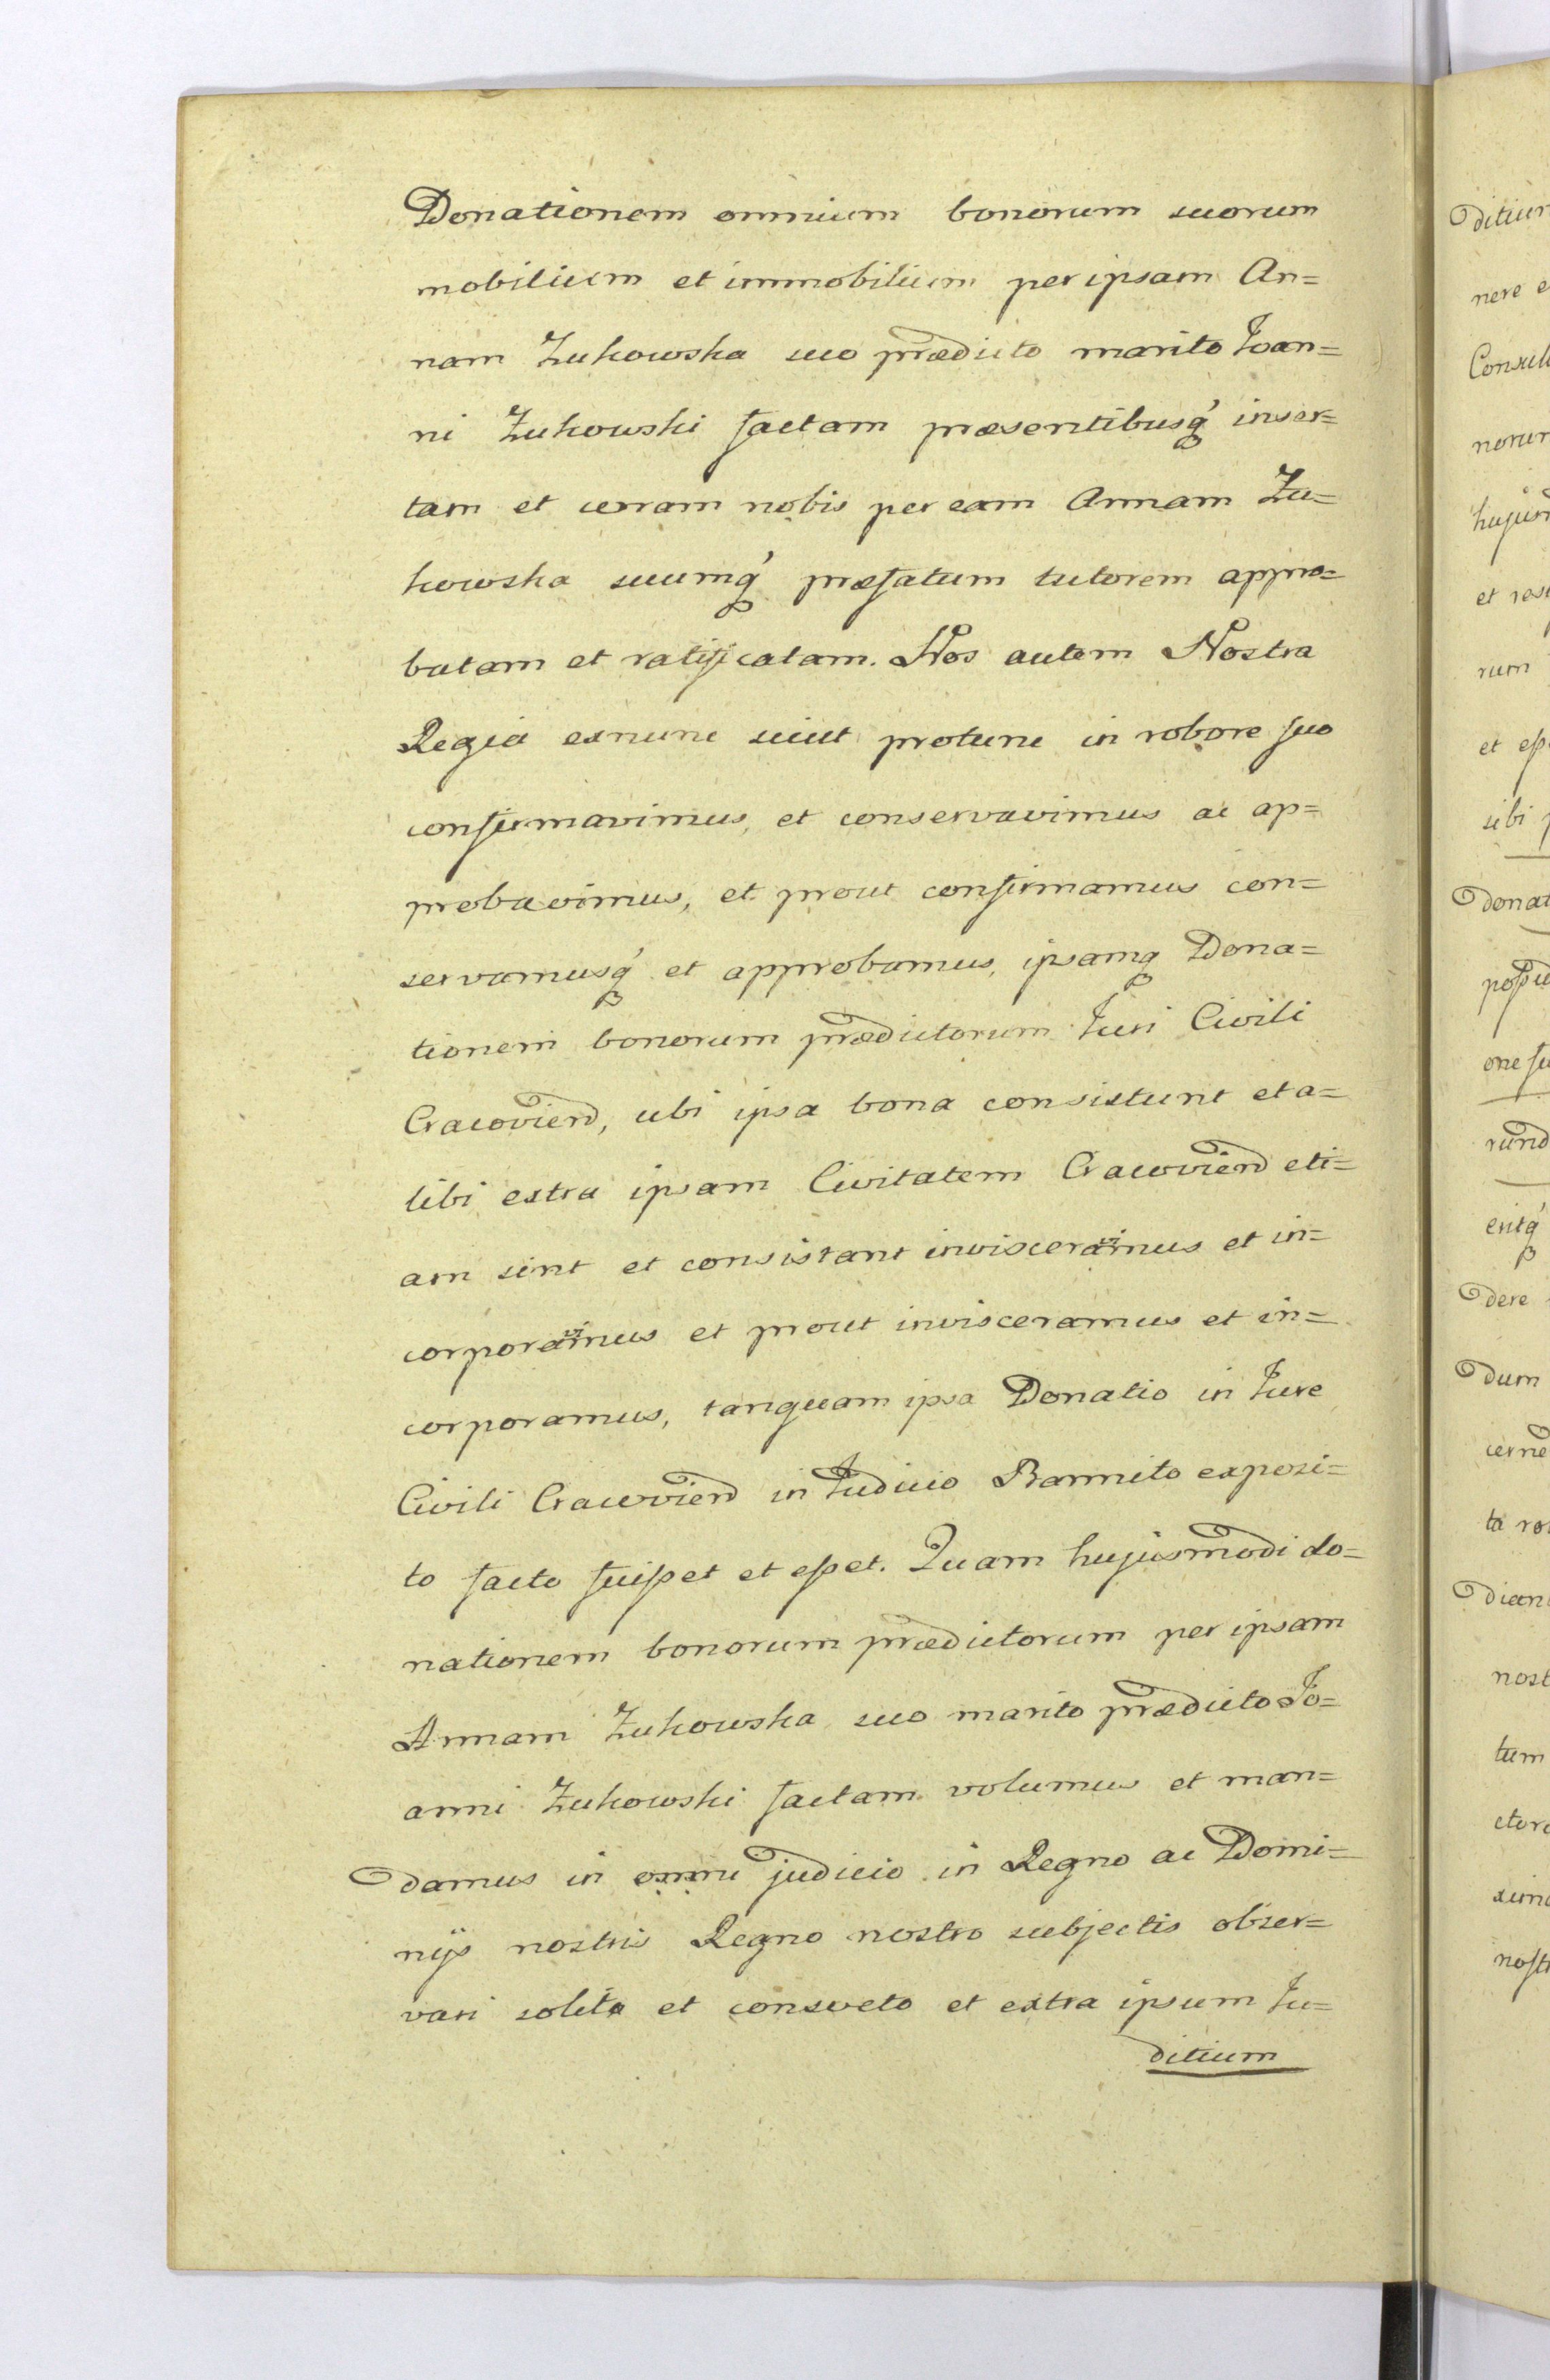 Donationem omnium bonorum suorum
mobilium et immobilium per ipsam An=
nam Zukowska suo prædicto marito Joan=
ni Zukowski factam præsentibusq́ inser=
tam et coram nobis per eam Annam Zu=
kowska suumq́ præfatum tutorem appro=
batam et ratificatam. Nos autem Nostra
Regia exnunc sicut protunc in robore suo
confirmavimus, et conservavimus ac ap=
probavimus, et prout confirmamus con=
servamusq́ et approbamus, ipsamq Dona=
tionem bonorum prædictorum Juri Civili
Cracovien, ubi ipsa bona consistunt et a=
libi extra ipsam Civitatem Cracovien eti=
am sint et consistant inviscera vimus et in=
corporavimus et prout invisceramus et in=
corporamus, tanquam ipsa Donatio in Jure
Civili Cracovien in Judicio Bannito exposi=
to facto fuisset et esset. Quam hujusmodi do=
nationem bonorum prædictorum per ipsam
Annam Zukowska suo marito prædicto Jo=
anni Zukowski factam volumus et man=
damus in omni judicio in Regno ac Domi=
nijs nostris Regno nostro subjectis obser=
vari solito et consveto et extra ipsum Ju=
ditium
ditiu
nere e
Consul
norum
hujusm
et res
rum
et esse
sibi p
donat
possu
one su
rund
eritq́
dere
dum
cerne
ta ro
dian
nost
tum
ctor
nost